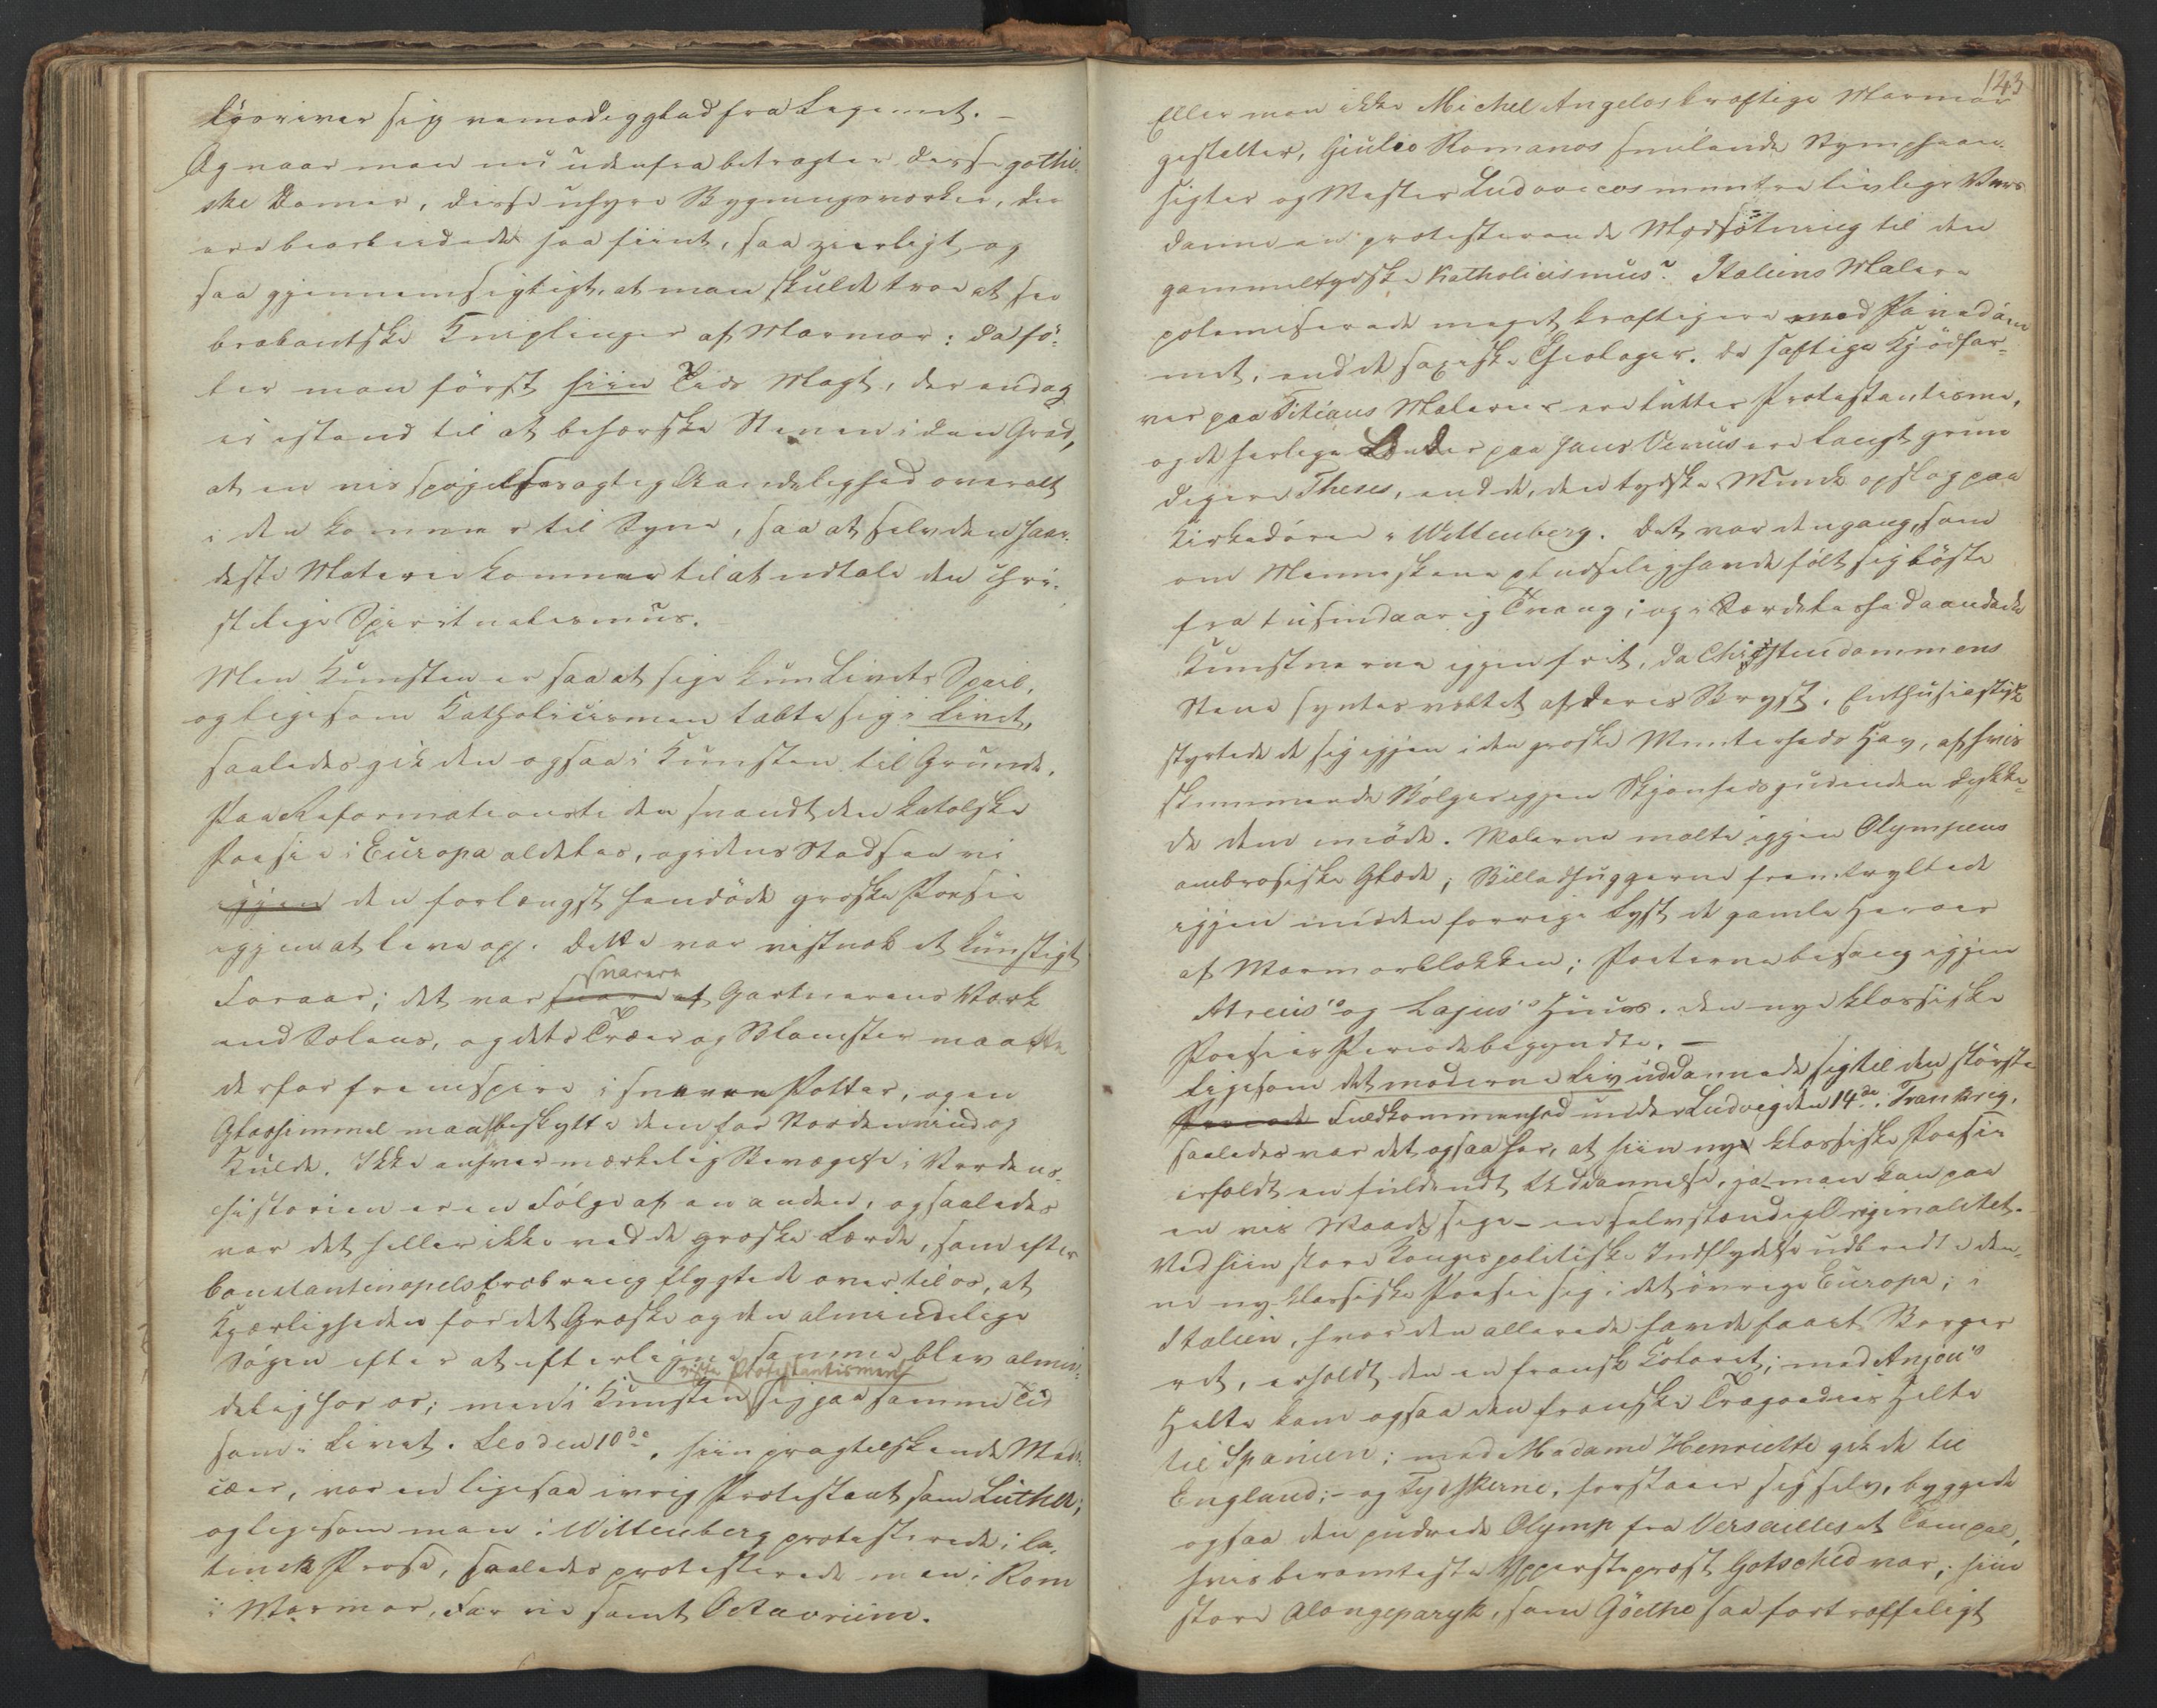 løsriver sig vemodigglad fra Legemet. –
Og naar man nu udenfra betragter disse gothi-
ske Domer, disse uhyre Bygningsværker, der
ere bearbeidede saa fiint, saa zierligt og
saa gjennemsigtigt, at man skulde troe at see
brabantske Kniplinger af Marmor: da fø-
ler man först hiin Tids Magt, der endog
er istand til at beherske Stenen i den Grad,
at en vis spøgelsesagtig Aandelighed overalt
i den kommer til Syne, saa at selv den haar-
deste Materie kommer til at udtale den chri-
stelige Spiritualismus.
Men Kunsten er saa at sige kun Livets Speil,
og ligesom Katholicismen tabte sig i Livet,
saaledes gik den ogsaa i Kunsten til Grunde.
Paa Reformationstiden svandt den katolske
Poesie i Europa aldeles, og i dens Sted see vi
igjen den forlængst hendöde græske Poesie
igjen at leve op. Dette var vistnok et kunstigt
Foraar; det var snarere Gartnerens Værk
end Solens, og dets Træer og Blomster maatte
derfor fremspire i snevre Potter, og en
Glashimmel maa beskytte dem for Nordenvind og
Kulde. Ikke enhver mærkelig Bevægelse i Verdens-
historien er en Følge af en anden, og saaledes
var det heller ikke ved de græske Lærde, som efter
Constantinopels Erobring flygtede over til os, at
Kjærligheden for det Græske og den almindelige
Søgen efter at efterligne samme blev almin-
viste Protestantismen
delig hos os; men i Kunsten sig paa samme Tid
som i Livet. Leo den 10de, hiin pragtelskende Medi-
cæer, var en ligesaa ivrig Protestant som Luther;
og ligesom man i Wittenberg protesterede i la-
tinsk Prosa, saaledes protesterede man i Rom
i Marmor, Farve samt Octaverime.
143
Eller mon ikke Michel Angelos kraftige Marmor
gestalter, Giulio Romanos smilende Nymphean-
sigter og Mester Ludovicos muntre livlige Vers
danne en protesterende Modsætning til den
gammeltydske Katholicismus? Italiens Malere
polemiserede meget kraftigere mod Pavedöm
met, end de saxiske Theologer. De saftige Kjödfar-
ver paa Titians Malerier ere lutter Protestantisme,
og de herlige Lænder paa hans Venus ere langt grun
digere Theses, end de, den tydske Munk opslog paa
Kirkedøren i Wittenberg. Det var dengang, som
om Menneskene pludselig havde følt sig löste
fra tusindaarig Tvang; og i Særdeleshed aandede
Kunstnerne igjen frit, da Christendommens
Steen syntes væltet af deres Bryst. Enthusiastisk
styrtede de sig igjen i den græske Munterheds Hav, af hvis
skummende Bölger igjen Skjønhedsgudinden dukke-
de dem imöde. Malerne malte igjen Olympens
ambrosiske Glæde; Billedhuggerne fremtryllede
igjen med den forrige Lyst de gamle Heroer
af Marmorblokken; Poeterne besang igjen
Atreus's og Lajus's Huus. Den nye klassiske
Poesies Periode begyndte. –
Ligesom det moderne Liv uddannede sig til den störste
Fuldkommenhed under Ludvig den 14de i Frankrig,
saaledes var det ogsaa her, at hiin nye klassiske Poesie
erholdt en fuldendt Uddannelse, ja man kan paa
en vis Maade sige – en selvstændig Originalitet.
Ved hiin store Konges politiske Indflydelse udbredte den-
ne ny-klassiske Poesie sig i det övrige Europa; i
Italien, hvor den allerede havde faaet Borger
ret, erholdt den en fransk Kolorit; med Anjou's
Helte kom ogsaa den franske Tragoedies Helte
til Spanien; med Madame Henriette gik de til
England; – og Tydskerne, forstaaer sig selv, byggede
ogsaa den pudrede Olymp fra Versailles et Tempel,
hvis berømteste Ypperstepræst Gotsched var; hiin
store Alongeparyk, som Göethe saa fortræffeligt